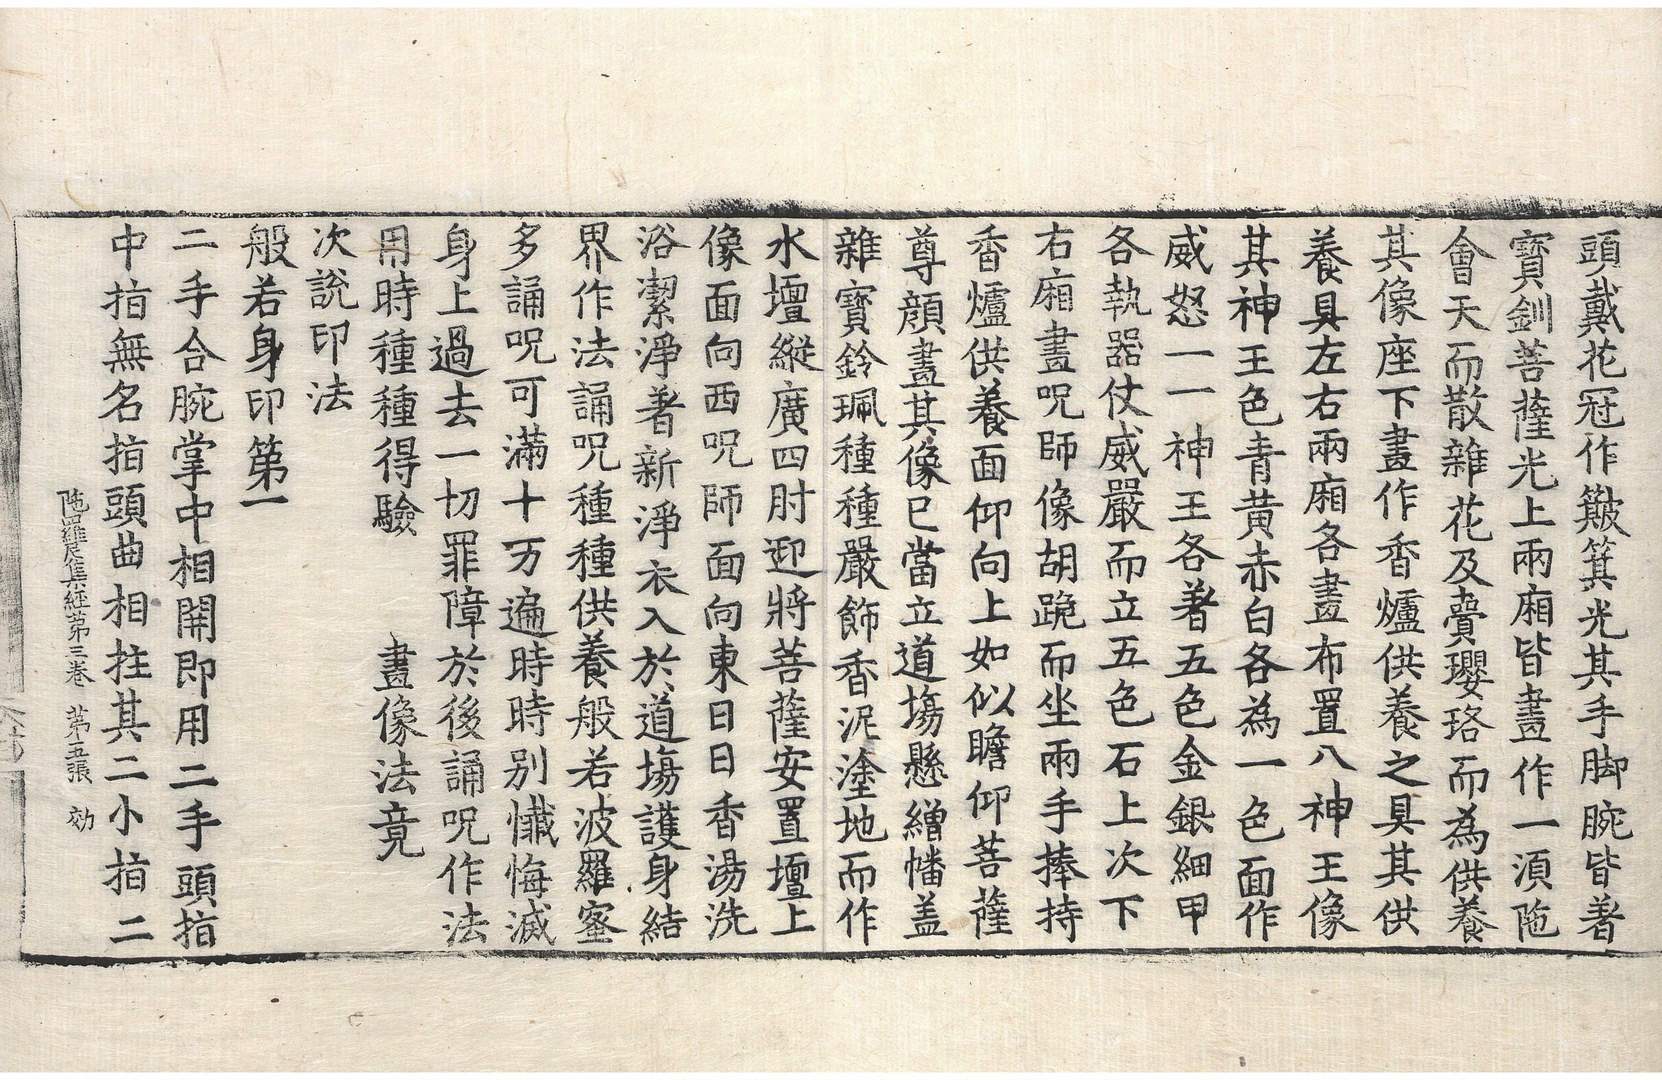 頭戴花冠作簸箕光其手脚腕皆著
寶釧菩薩光上兩廂皆畫作一湏陁
會天而散雜花及賣瓔珞而為供養
其像座下畫作香爐供養之具其供
養具左右兩廂各畫布置八神王像
其神王色青黄赤白各為一色面作
威怒一一神王各著五色金銀細甲
各執器仗威嚴而立五色石上次下
右廂畫呪師像胡跪而坐兩手捧持
香爐供養面仰向上如似瞻仰菩薩
尊顔畫其像已當立道塲懸繒幡盖
雜寶鈴珮種種嚴飾香泥塗地而作
水壇縱廣四肘迎將菩薩安置壇上
像面向西呪師面向東日日香湯洗
浴潔淨著新淨衣入於道塲護身結
界作法誦呪種種供養般若波羅蜜
多誦呪可滿十万遍時時别懺悔滅
身上過去一切罪障於後誦呪作法
用時種種得驗　畫像法竟
次說印法
般若身印第一
二手合腕掌中相開即用二手頭指
中指無名指頭曲相拄其二小指二
陁羅尼集經第三卷　第五張　効